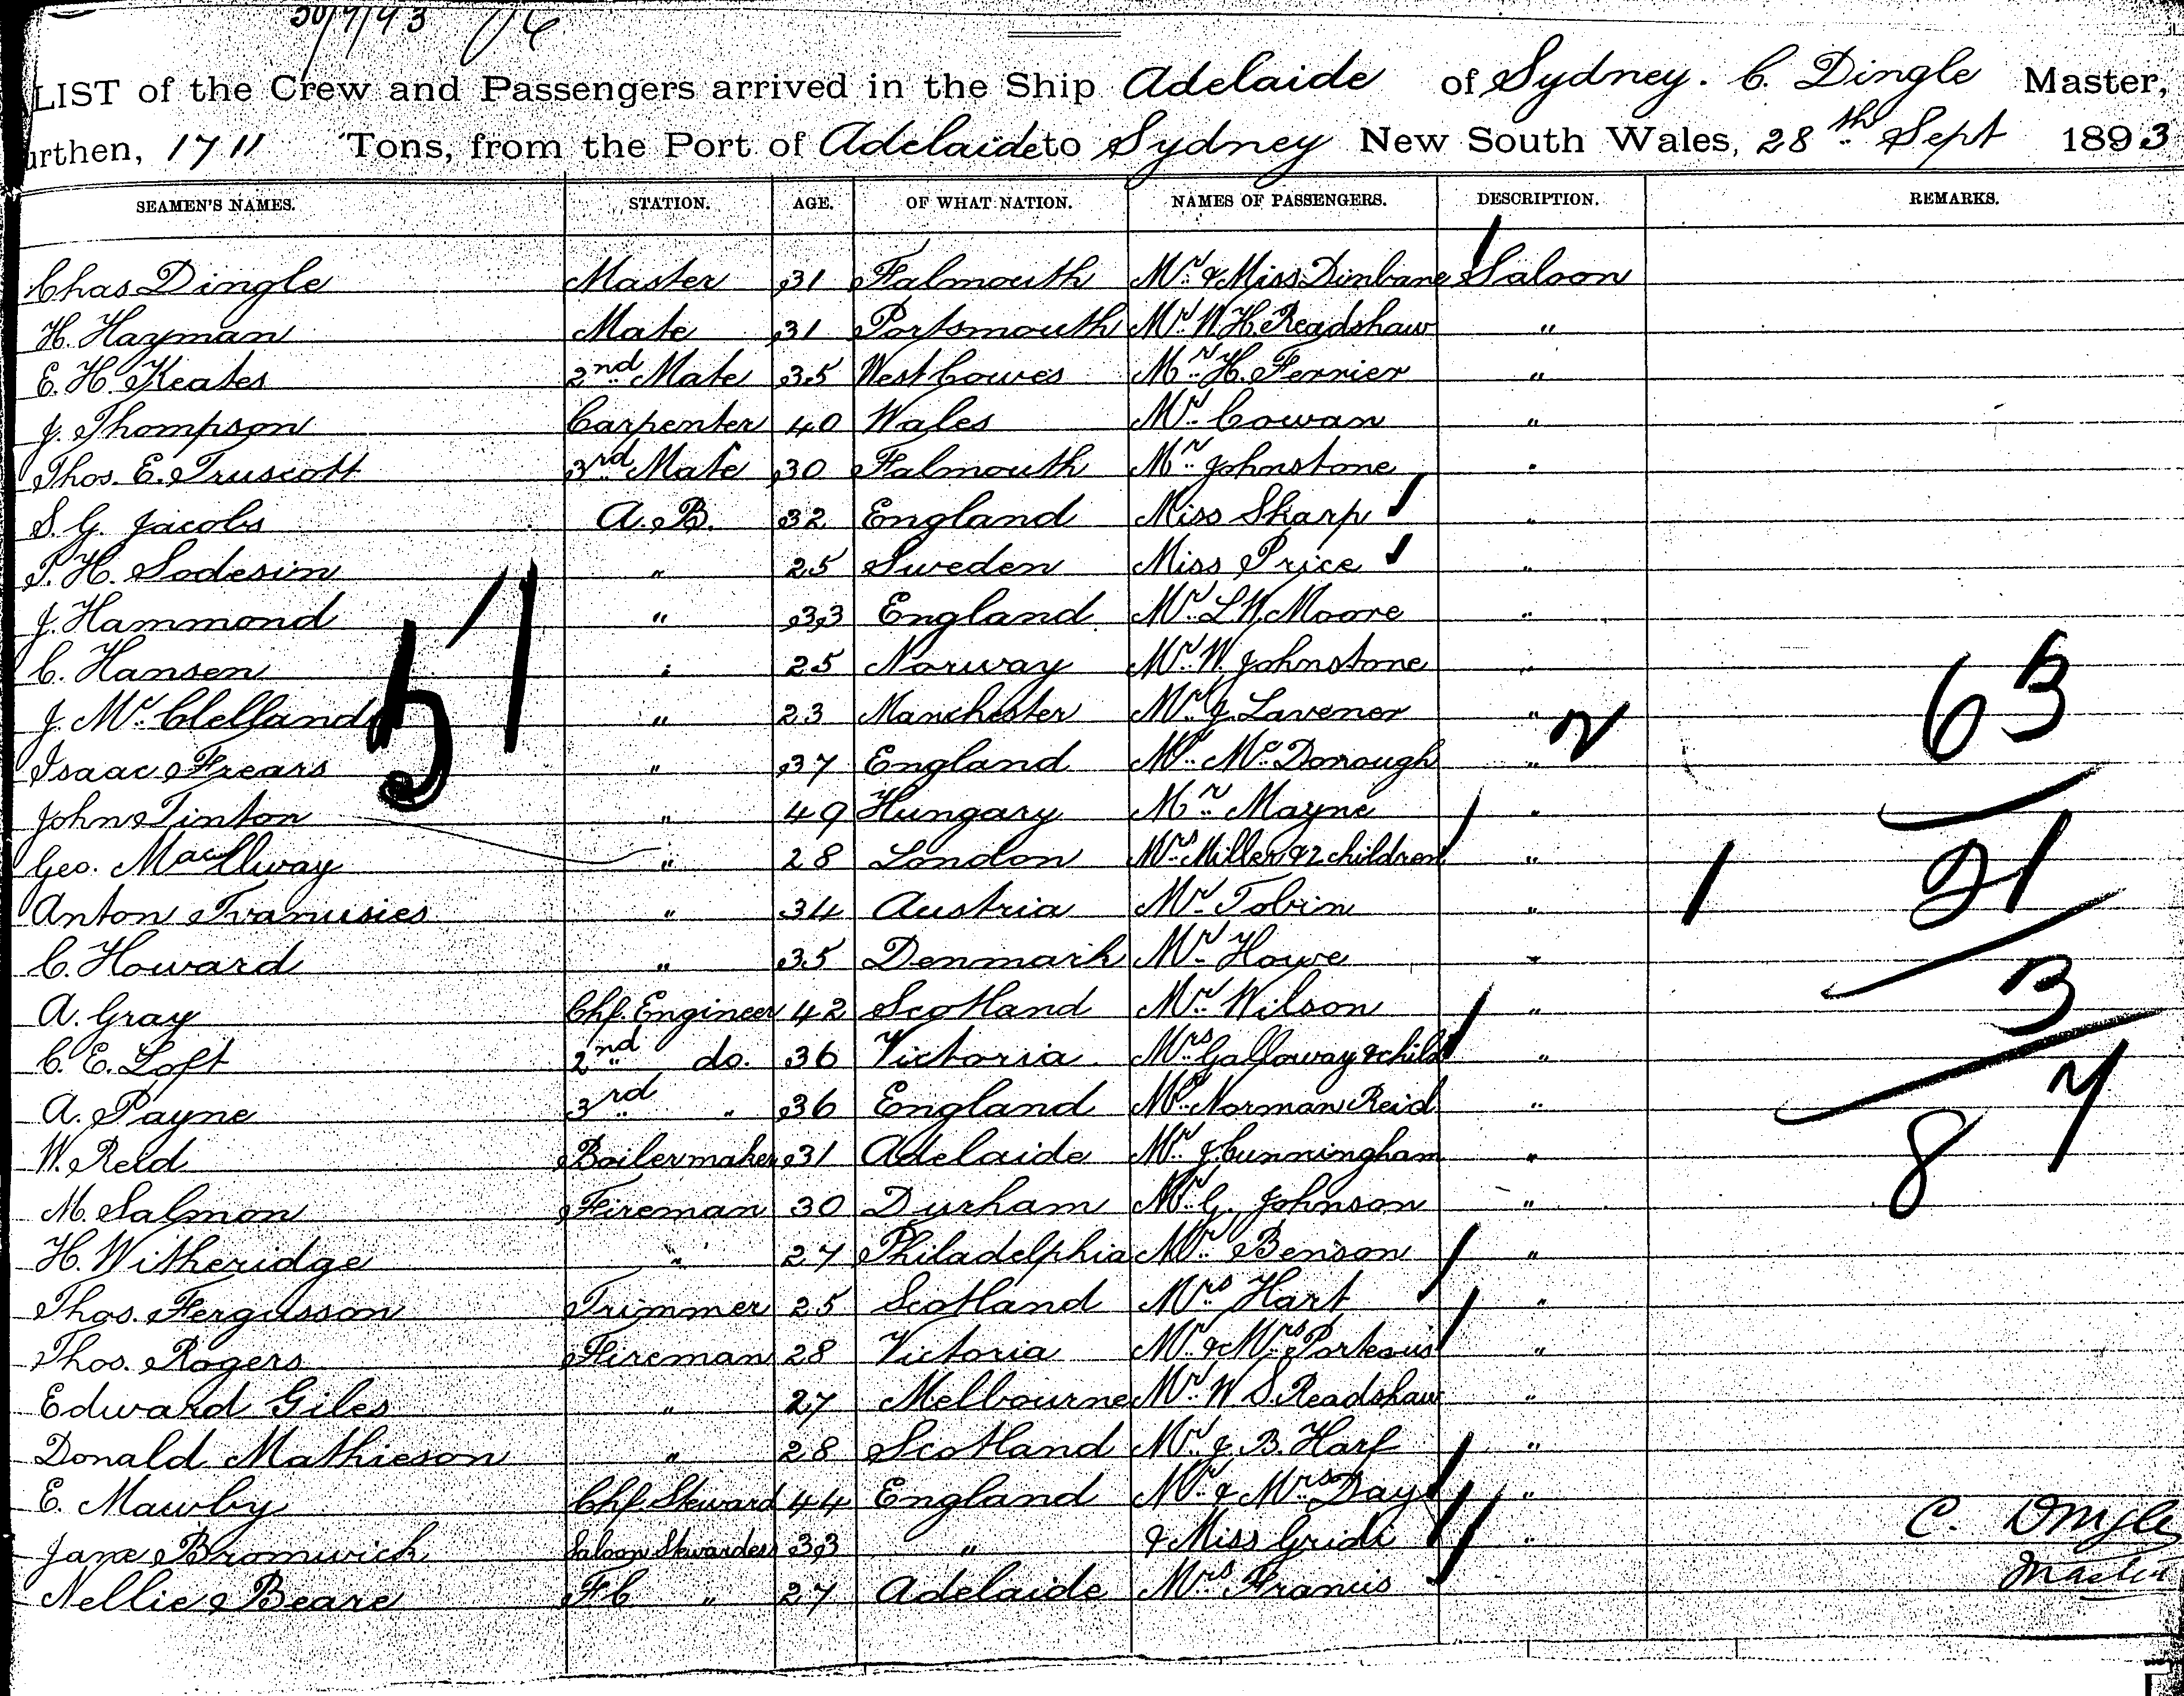 LIST of the Crew and Passengers arrived in the Ship Adelaide of Sydney. C. Dingle Master,
urthen, 1711 Tons, from the Port of Adelaide to Sydney New South Wales, 28th Sept 1893
SEAMEN'S NAMES. STATION. AGE. OF WHAT NATION. NAMES OF PASSENGERS. DESCRIPTION. REMARKS.
Chas Dingle Master 31 Falmouth Mr. & Miss Dinbane Saloon
H. Hayman Mate 31 Portsmouth Mr. W.H. Readshaw "
E. H. Keates 2nd Mate 35 West Cowes Mr. H. Ferrier "
J. Thompson Carpenter 40 Wales Mr. Cowan "
Thos. E. Truscott 3rd Mate 30 Falmouth Mr. Johnstone "
S. G. Jacobs A.B. 32 England Miss Sharp "
P. H. Sodesim " 25 Sweden Miss Price "
J. Hammond " 33 England Mr. L W Moore "
C. Hansen " 25 Norway Mr. W. Johnstone "
J. Mc. Clelland " 23 Manchester Mr. J. Lavenor "
Isaac Frears " 37 England Mr. Mc. Donough "
John Tinton " 49 Hungary Mr. Mayne "
Geo. MacIlway " 28 London Mrs. Miller & 2 children "
Anton Ivanusies " 34 Austria Mr. Tobin "
C. Howard " 35 Denmark Mr. Howe "
A. Gray Chf. Engineer 42 Scotland Mr. Wilson "
C. E. Loft 2nd do. 36 Victoria Mrs. Galloway & child "
A. Payne 3rd " 36 England Mr. Norman Reid "
W. Reid Boilermaker 31 Adelaide Mr. J. Cunningham "
M. Salmon Fireman 30 Durham Mr. G. Johnson "
H. Witheridge " 27 Philadelphia Mr. Benson "
Thos. Fergusson Trimmer 25 Scotland Mrs. Hart "
Thos. Rogers Fireman 28 Victoria Mr. & Mrs. Porteous "
Edward Giles " 27 Melbourne Mr. W S. Readshaw "
Donald Mathieson " 28 Scotland Mr. J. B. Harf "
E. Mawby Chf. Steward 44 England Mr. & Mrs. Day "
Jane Bromwich Saloon Stewardess 33 " & Miss Gridi "
Nellie Beare F.C " 27 Adelaide Mrs. Francis
51
63
21
3
87
C. Dingle
Master